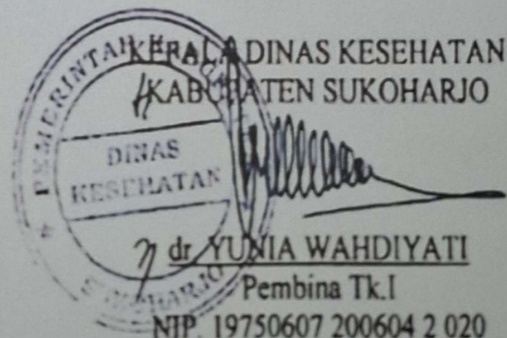 KEPALA DINAS KESEHATAN
KABUPATEN SUKOHARJO
PEMERINTAH
DINAS
KESEHATAN
SUKOHARJO
dr. YUNIA WAHDIYATI
Pembina Tk.I
NIP. 19750607 200604 2 020